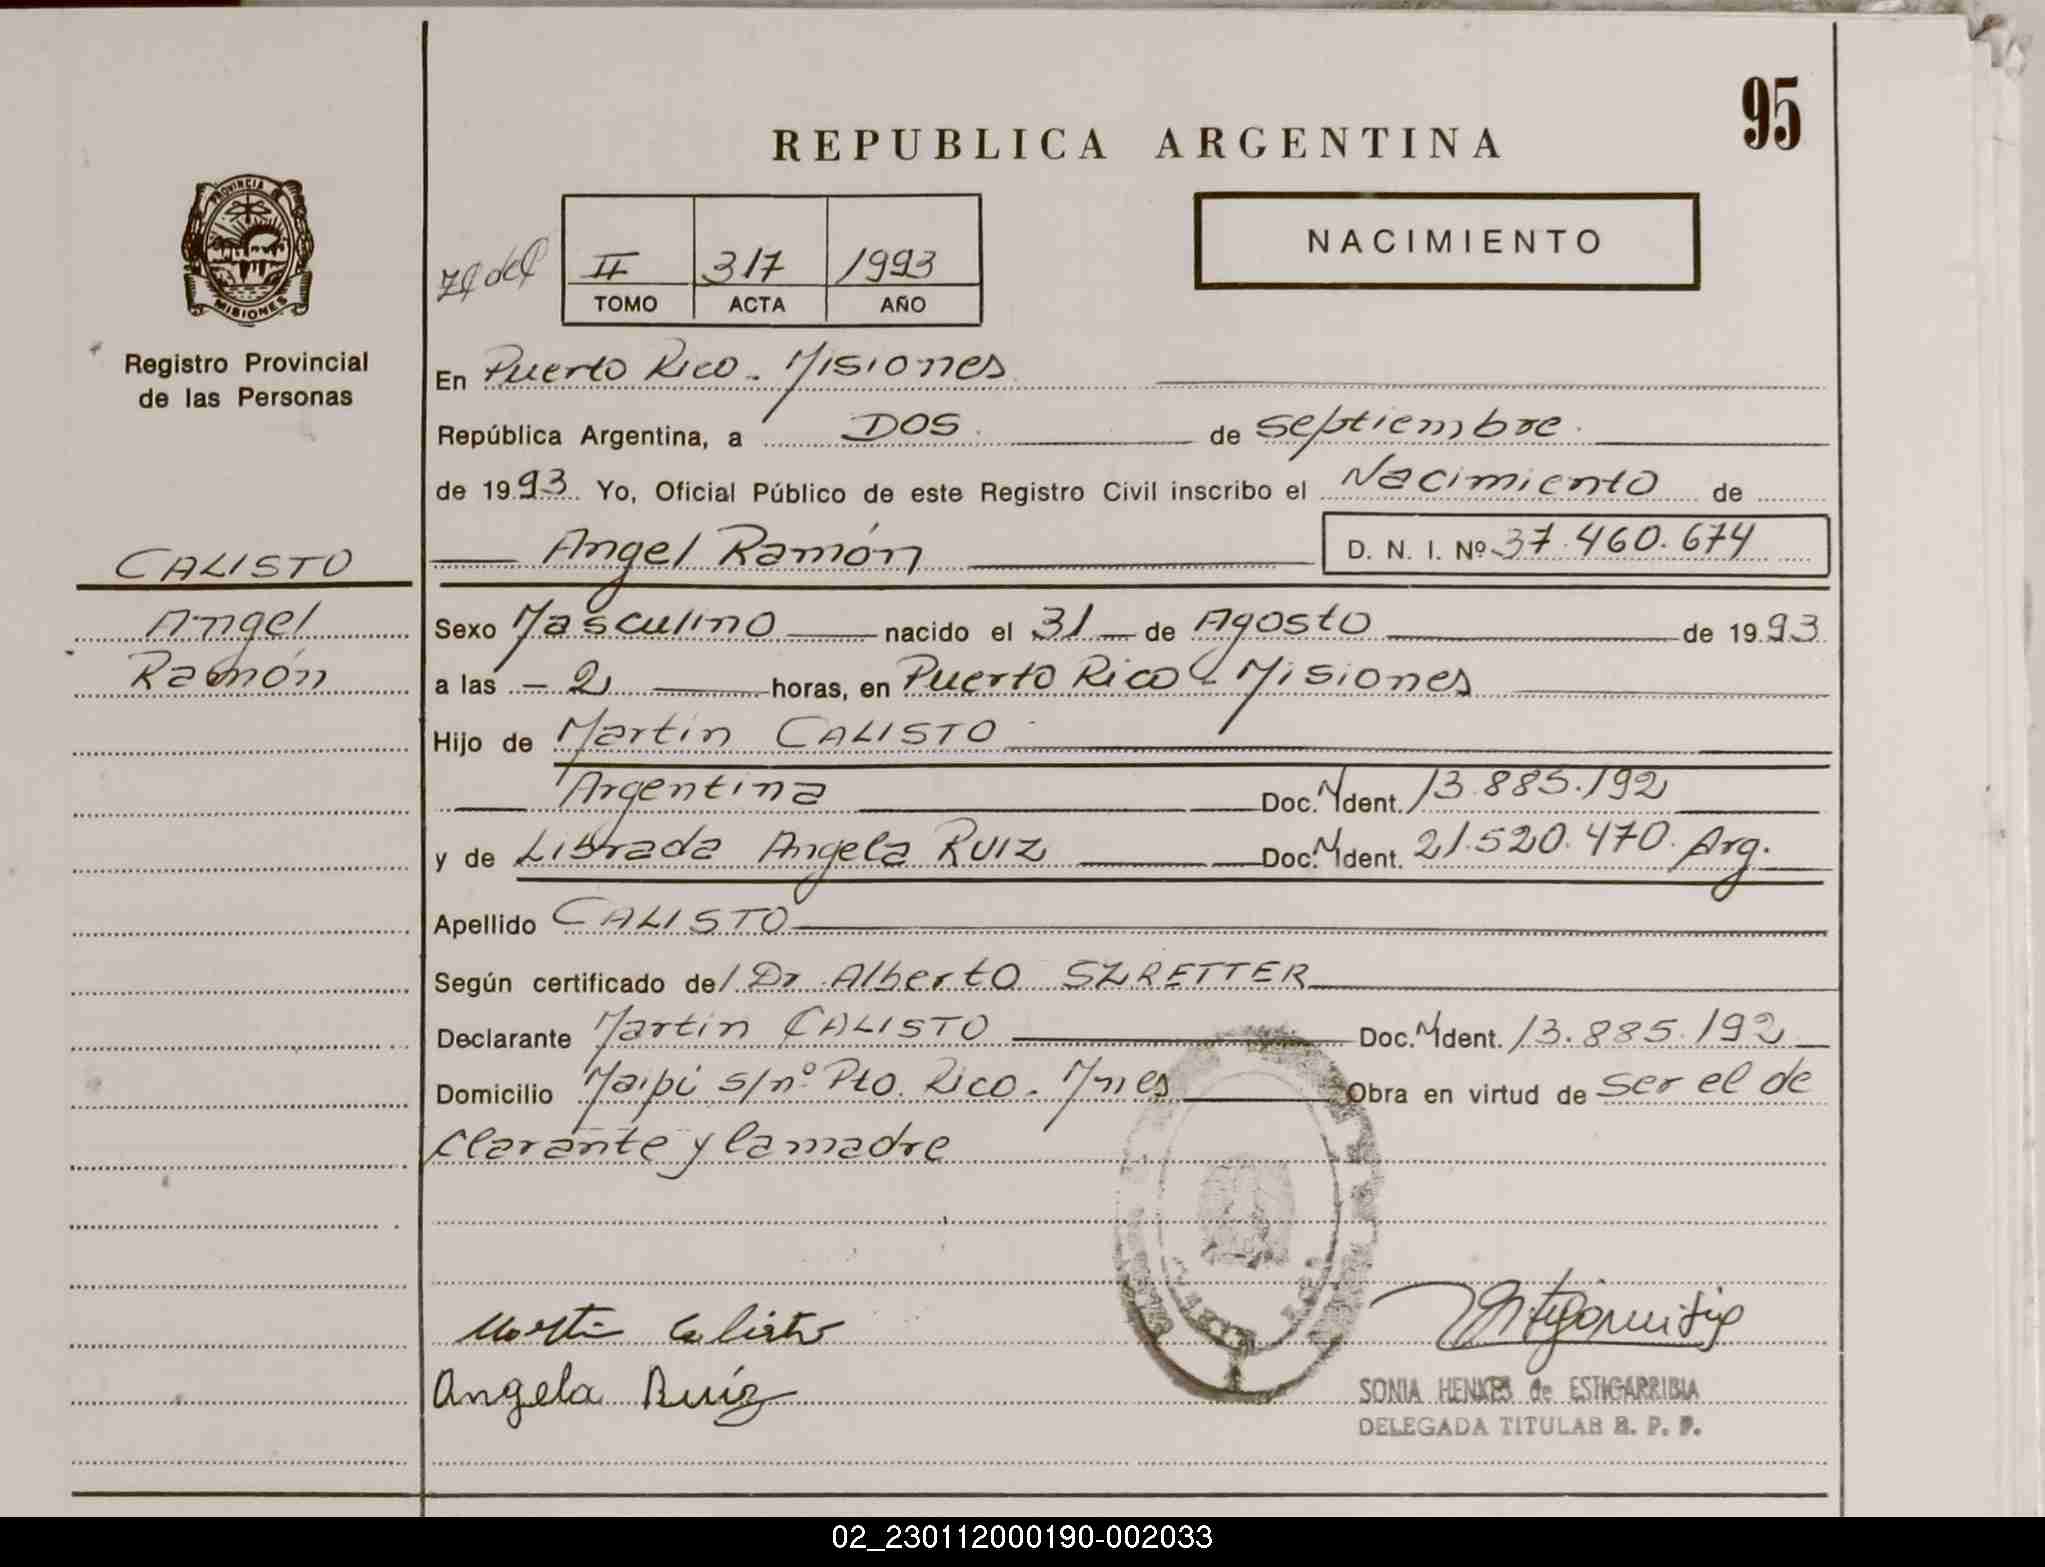 95
REPUBLICA ARGENTINA
PROVINCIA DE
MISIONES
Registro Provincial
de las Personas
II 317 1993
TOMO ACTA AÑO
NACIMIENTO
En Puerto Rico - Misiones
República Argentina, a DOS de septiembre
de 1993 Yo, Oficial Público de este Registro Civil inscribo el Nacimiento de
Angel Ramón D. N. I. Nº 37.460.674
CALISTO
Angel
Ramón
Sexo Masculino nacido el 31 de Agosto de 1993
a las - 2 horas, en Puerto Rico - Misiones
Hijo de Martín CALISTO
Argentina Doc. N Ident. 13.885.192
y de Librada Angela RUIZ Doc. N Ident. 21.520.470 Arg.
Apellido CALISTO
Según certificado del Dr. Alberto SZRETTER
Declarante Martín CALISTO Doc. N Ident. 13.885.192
Domicilio Maipú s/nº Pto. Rico - Mnes Obra en virtud de ser el de
clarante y la madre
Martin Calisto
Angela Ruíz
SONIA HENKES de ESTIGARRIBIA
DELEGADA TITULAR R. P. P.
02_230112000190-002033